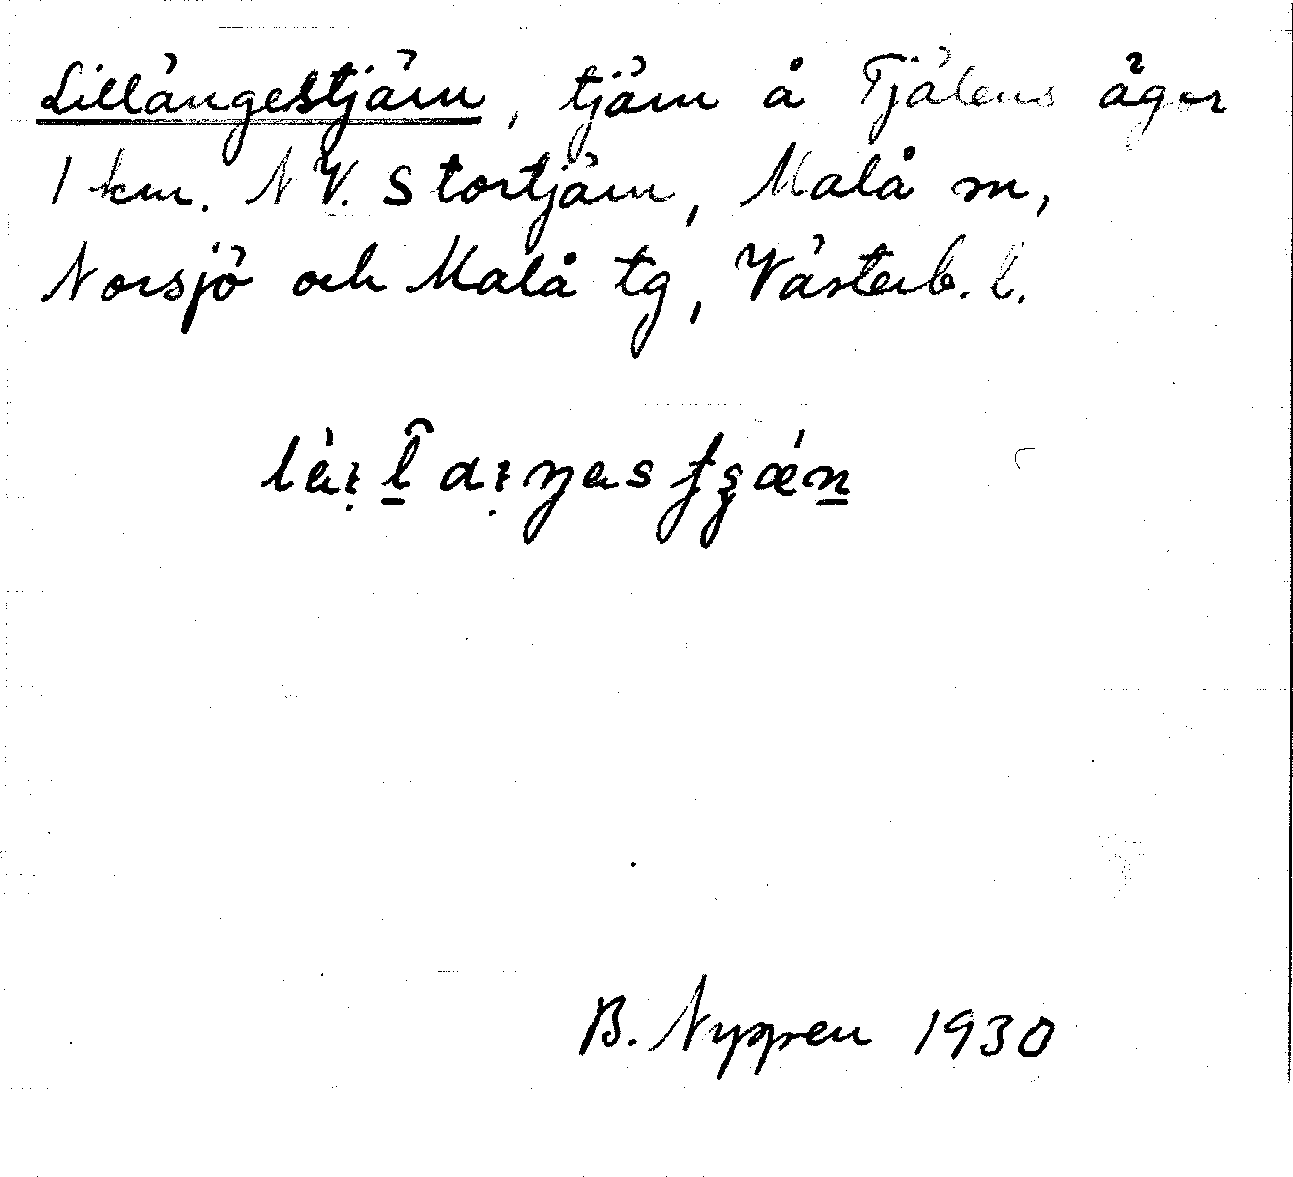 Lillängestjärn, tjärn å Tjälens ägor
1 km. NV. Stortjärn, Malå sn,
Norsjö och Malå tg, Västerb. l.
B. Nygren 1930